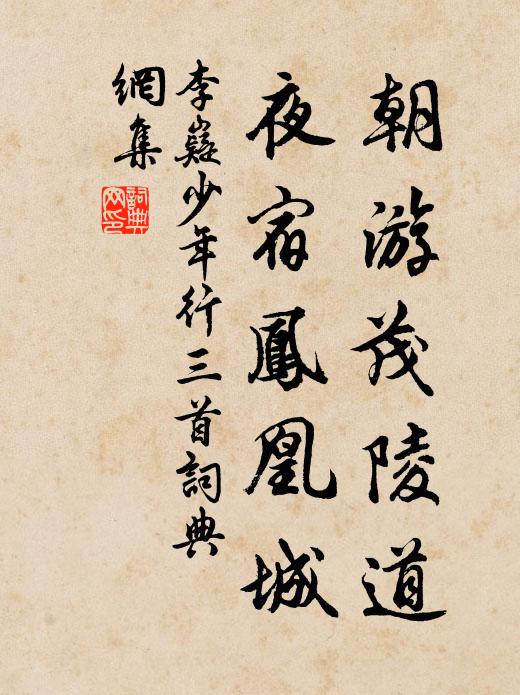 朝游茂陵道
夜宿鳳凰城
李嶷少年行三首詞典
網集
詞典
网印